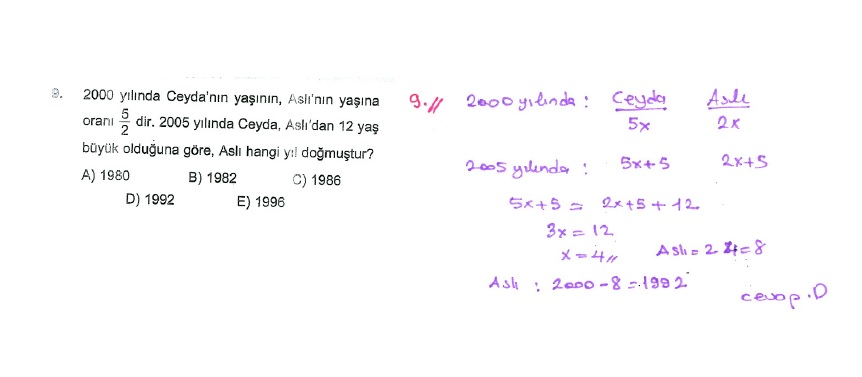 9. 2000 yılında Ceyda'nın yaşının, Aslı'nın yaşına
oranı 5/2 dir. 2005 yılında Ceyda, Aslı'dan 12 yaş
büyük olduğuna göre, Aslı hangi yıl doğmuştur?
A) 1980 B) 1982 C) 1986
D) 1992 E) 1996
9.// 2000 yılında : Ceyda Aslı
5x 2x
2005 yılında : 5x+5 2x+5
5x+5 = 2x+5+12
3x = 12
x = 4// Aslı = 2.4 = 8
Aslı : 2000-8 = 1992
cevap.D